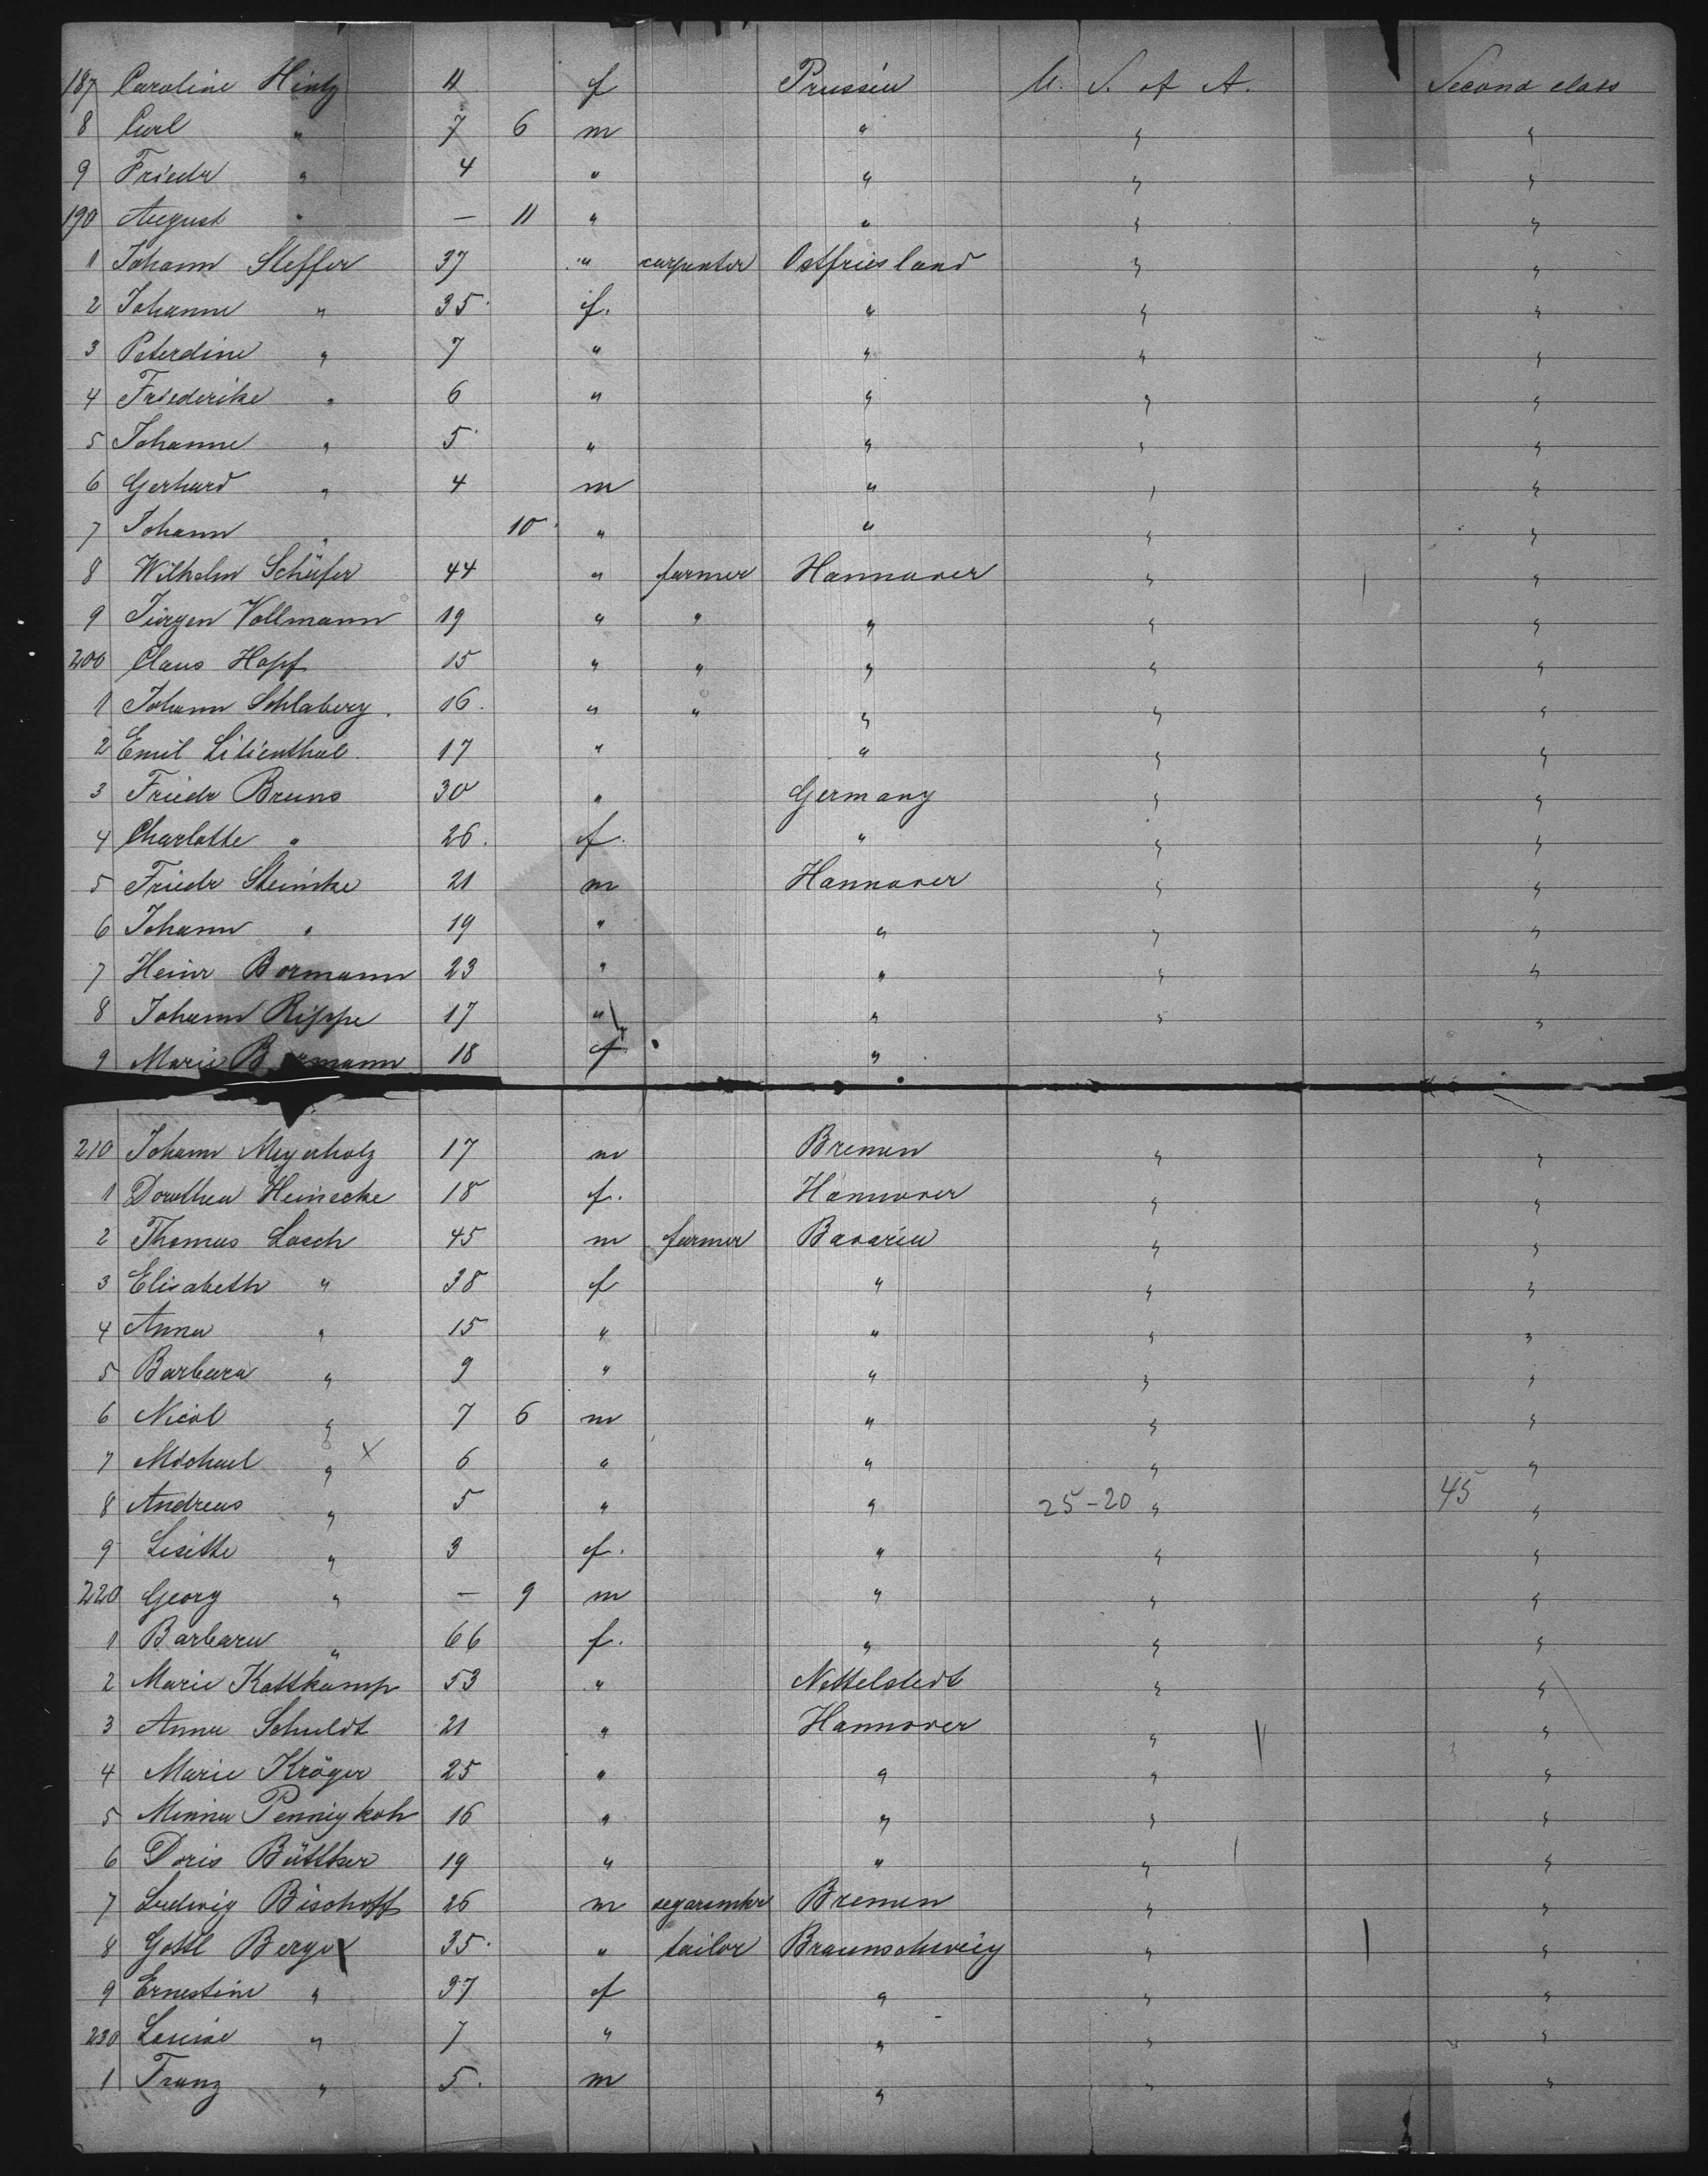 187 Caroline Hintz 11 f Prussia U. S. of A. Second class
8 Carl " 7 6 m " " "
9 Friedr " 4 " " " "
190 August " — 11 " " " "
1 Johann Steffer 37 " carpenter Ostfriesland " "
2 Johanne " 35 f. " " "
3 Peterdine " 7 " " " "
4 Friederike " 6 " " " "
5 Johanne " 5 " " " "
6 Gerhard " 4 m " " "
7 Johann " 10 " " " "
8 Wilhelm Schäfer 44 " farmer Hannover " "
9 Jürgen Vollmann 19 " " " " "
200 Claus Hopf 15 " " " " "
1 Johann Schlaberg. 16. " " " " "
2 Emil Lilienthal. 17 " " " "
3 Friedr Bruns 30 " Germany " "
4 Charlotte " 26. f. " " "
5 Friedr Steincke 21 m Hannover " "
6 Johann " 19 " " " "
7 Heinr Bormann 23 " " " "
8 Johann Rippe 17 " " " "
9 Marie B mann 18 f "
210 Johann Meyerholz 17 m Bremen " "
1 Dorothea Heinecke 18 f. Hannover " "
2 Thomas Loech 45 m farmer Bavaria " "
3 Elisabeth " 38 f " " "
4 Anna " 15 " " " "
5 Barbara " 9 " " " "
6 Nicol " 7 6 m " " "
7 Michael " X 6 " " " "
8 Andreas " 5 " " 25-20 " 45 "
9 Lisette " 3 f. " " "
220 Georg " — 9 m " " "
1 Barbara " 66 f. " " "
2 Marie Kottkamp 53 " Nettelstedt " "
3 Anna Schuldt 21 " Hannover " "
4 Marie Kröger 25 " " " "
5 Minna Pennigkoh 16 " " " "
6 Doris Büttker 19 " " " "
7 Ludwig Bischoff 26 m segarmkr Bremen " "
8 Gottl Berge 35. " tailor Braunschweig " "
9 Ernestine " 37 f " " "
230 Louise " 7 " " " "
1 Franz " 5. m " " "